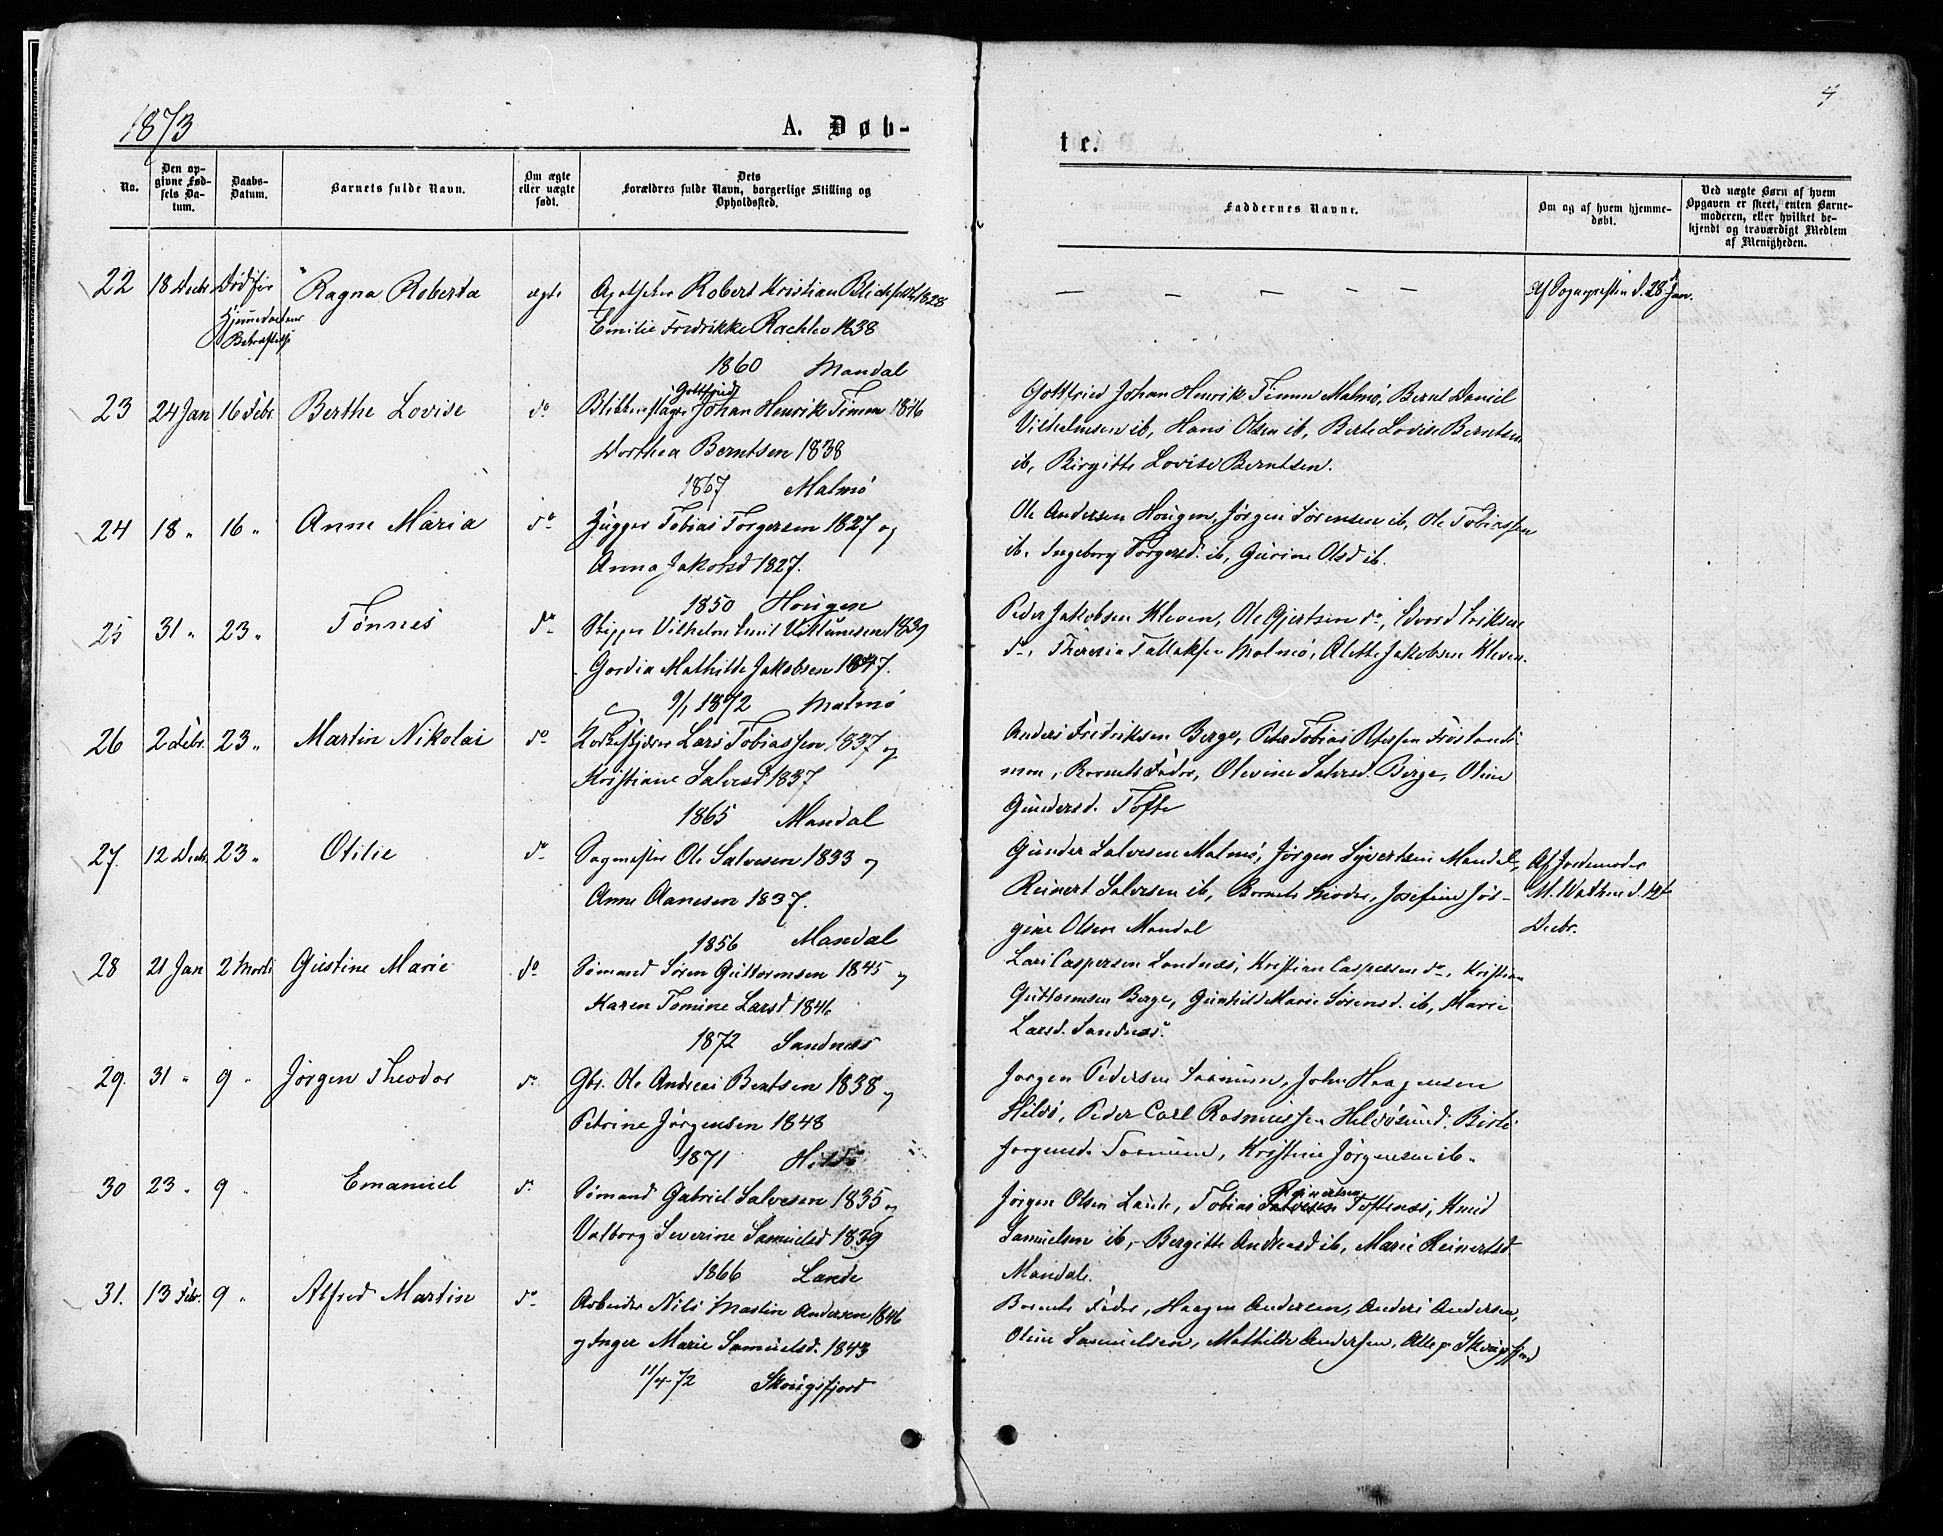 1873
A. Døb-
te.
4
No.
Den opgivne Fødsels Datum.
Daabs-Datum.
Barnets fulde Navn.
Om ægte eller uægte født.
Dets Forældres fulde Navn, borgerlige Stilling og Opholdssted.
Faddernes Navne.
Om og af hvem hjemmedøbt.
Ved uægte Børn af hvem Opgaven er skeet, enten Barnemoderen, eller hvilket bekjendt og troværdigt Medlem af Menigheden.
22 18 Decbr Død før Ragna Roberta ægte Apotheker Robert Kristian 1828 — — — — — Af Sognepresten d. 28 Jan.
Hjemmedaabens Bekræftelse
Emilie Fredrikke 1838
1860 Mandal
23 24 Jan 16 Febr Berthe Lovise do Blikkenslager Gottfried Johan Henrik Timm 1846
Dorthea Berntsen 1838
1867 Malmø
Gottfried Johan Henrik Timm Malmø, Bernt Daniel
Vilhelmsen ib, Hans Olsen ib, Berte Lovise Berntsen
ib, Birgitte Lovise Berntsen.
24 18 " 16 " Anne Maria do Hugger Tobias Torgersen 1827 og
Anna Jakobsd 1827.
1850 Hougen
Ole Andersen Hougen, Jørgen Sørensen ib, Ole Tobiassen
ib, Ingeborg Torgersd. ib, Gurine Olsd ib.
25 31 " 23 " Tønnes do Skipper Vilhelm Emil 1839
Mathilde Jakobsen 1847.
9/1 1872 Malmø
Peder Jakobsen Kleven, Ole Gjertsen do, Edvard Eriksen
do, Theresia Tallaksen Malmø, Alette Jakobsen Kleven.
26 2 Febr. 23 " Martin Nikolai do Korkeskjærer Lars Tobiassen 1837 og
Kristiane Salvesd 1837
1865 Mandal
Anders Fredriksen Berge, Peter Tobias Petersen
Barnets Fader, Olevine Salvesd. Berge, Oline
Gundersd. Tofte
27. 12 Decbr. 23 " Otilie do Sagmester Ole Salvesen 1833 og
Anne Aanesen 1837.
1856 Mandal
Gunder Salvesen Malmø, Jørgen Syvertsen Mandal,
Reinert Salvesen ib, Barnets Moder, Josefine Jør-
gine Olsen Mandal
Af Jordemoder
M. d. 12te
Decbr.
28 21 Jan 2 Marts Gustine Marie do Sømand Sören Guttormsen 1845 og
Karen Tomine Larsd 1846
1872 Sandnæs
Lars Caspersen Sandnæs, Kristian Caspersen do, Kristian
Guttormsen Berge, Gunhild Marie Sørensd. ib, Marie
Larsd. Sandnæs.
29. 31 " 9 " Jørgen Theodor do Gbr. Ole Andreas Bentsen 1838 og
Petrine Jørgensen 1848
1871 Hilsø
Jørgen Pedersen Saanum, John Haagensen
Hilsø, Peder Carl Rasmussen Berte
Jørgensd. Saanum, Kristine Jørgensen ib.
30 23 " 9 " Emanuel do Sømand Gabriel Salvesen 1835 og
Valborg Severine Samuelsd 1839
1866 Lande
Jørgen Olsen Lande, Tobias Reinertsen Toftenæs, Knud
Samuelsen ib, Bergitte Andreasd ib, Marie Reinertsd
Mandal.
31. 13 Febr. 9 " Alfred Martin do Arbeider Nils Martin Andersen 1846
og Inger Marie Samuelsd. 1843
11/4-72 Skougsfjord
Barnets Fader, Haagen Andersen, Anders Andersen,
Oline Samuelsen, Mathilde Andersen, Alle p. Skougsfjord